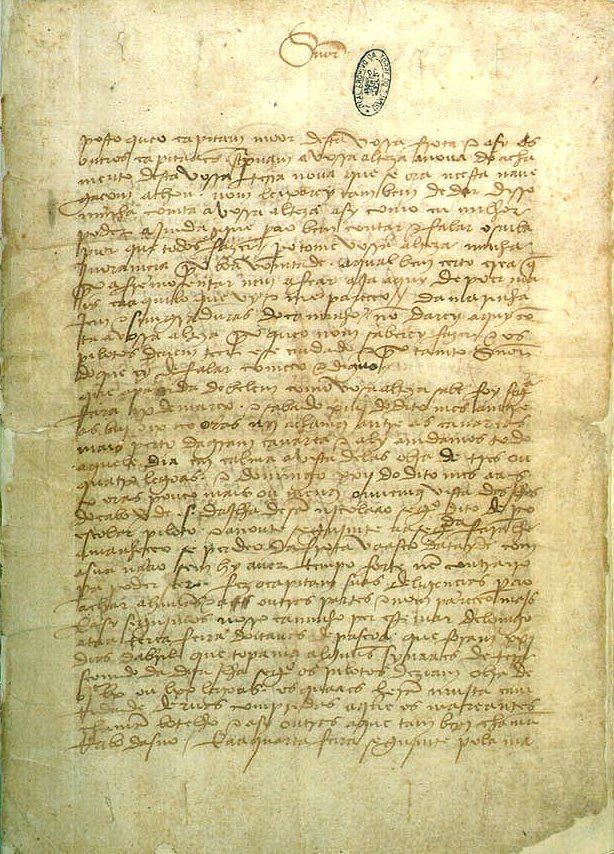 Snõr
REAL ARCHIVO DA TORRE DO TOMBO
posto que o capitam moor desta vossa frota e asy os
outros capitaães screpuam a vossa alteza a noua do acha
mento desta vossa terra noua que se ora neesta naue
gaçom achou. nom leixarey tambem de dar disso
minha comta a vossa alteza asy como eu milhor
poder ajmda que pera o bem contar e falar o saiba
pior que todos fazer. pero tome vossa alteza minha
jnoramçia por boa vomtade. a qual bem çerto crea que
por afremosentar nem afear aja aquy de poer ma
is ca aquilo que vy e me pareçeo. da marinha
jem e simgraduras do caminho nõ darey aquy cõ
ta a vossa alteza porque o nom saberey fazer e os
pilotos deuem teer ese cuidado e por tanto Snõr
do que ey de falar começo e diguo
que a partida de belem como vosa alteza sabe foy segª
feira ix de março. e sabado xiiij do dito mes amtre
as biij e ix oras nos achamos amtre as canareas
mais perto da gram canarea e aly amdamos todo
aquele dia em calma a vista delas obra de tres ou
quatro legoas. e domingo xxij do dito mes aas
x oras pouco mais ou menos ouuemos vista das jlhas
do cabo verde s. da jlha de sã njcolaao segº dito de pº
escolar piloto. e a noute segujmte aa segda feira lhe
amanheceo se perdeo da frota vaasco datayde com
a sua naao sem hy auer tempo forte nẽ contrairo
pera poder seer. fez o capitam suas deligençias pera o
achar a huũas e a outras partes e nom pareçeo majs
E asy segujmos nosso caminho per este mar de lomgo
ataa terça feira doitauas de pascoa que foram xxj
dias dabril que topamos alguũs synaaes de tera
seemdo da dita jlha segº os pilotos deziam obra de
bjᶜ lx ou lxx legoas. os quaaes herã mujta camti
dade deruas compridas a que os mareantes
chamã botelho e asy outras a que tam bem chamã
rrabo dasno. E aa quarta feira segujmte pola ma